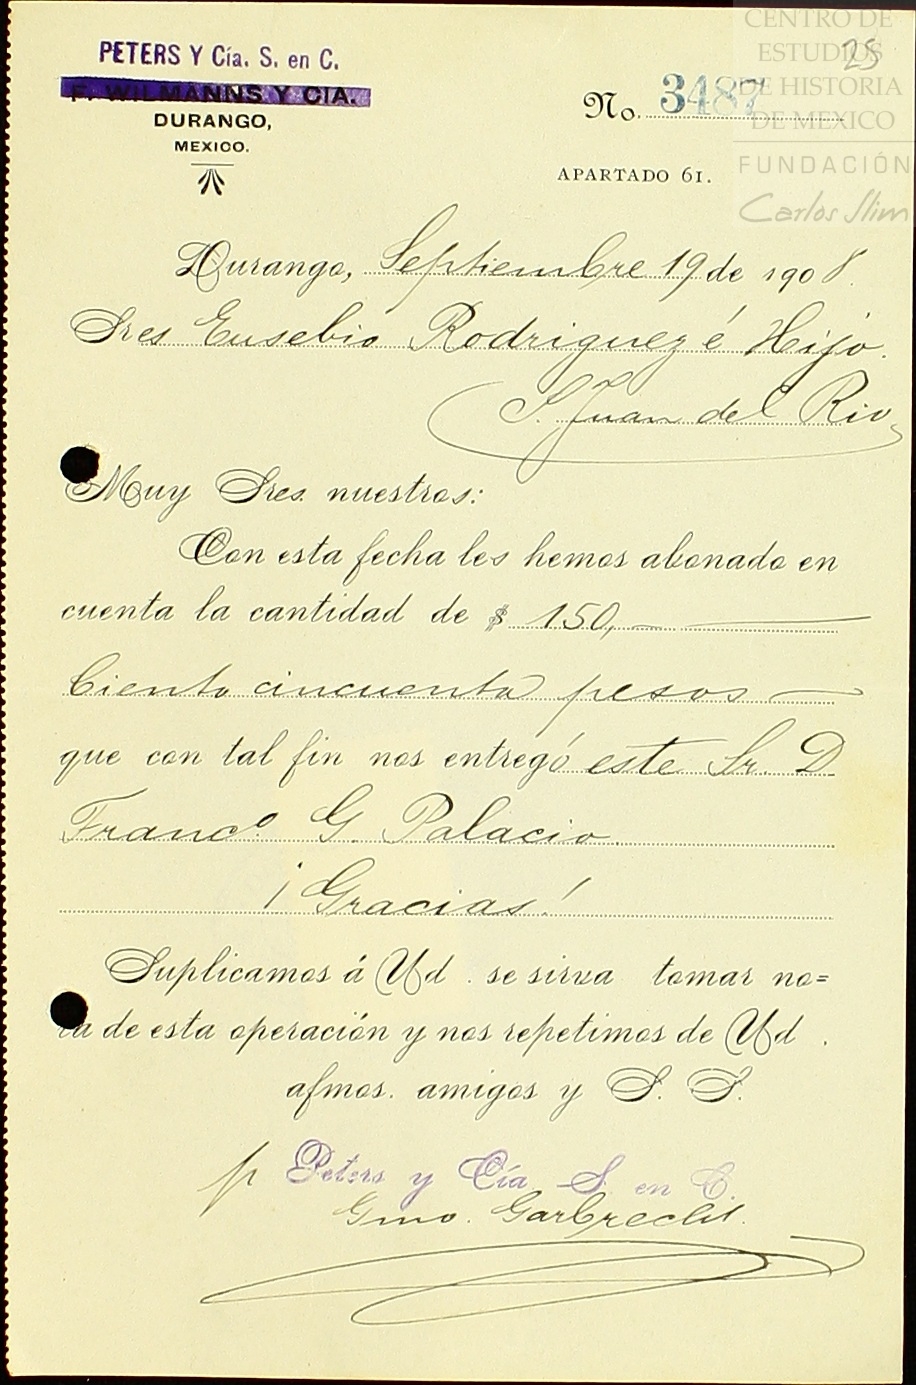 CENTRO DE
ESTUDIOS
DE HISTORIA
DE MEXICO
FUNDACIÓN
Carlos Slim
25
PETERS Y Cía. S. en C.
F. WILMANNS Y CIA.
DURANGO,
MEXICO.
No. 3487
APARTADO 61.
Durango, Septiembre 19 de 1908.
Sres Eusebio Rodriguez é Hijo.
S. Juan del Rio
Muy Sres. nuestros:
Con esta fecha les hemos abonado en
cuenta la cantidad de $ 150,
Ciento cincuenta pesos
que con tal fin nos entregó este Sr. D
Franco. G. Palacio.
¡Gracias!
Suplicamos á Ud. se sirva tomar no=
ta de esta operación y nos repetimos de Ud.
afmos. amigos y S. S.
p Peters y Cía. S. en C.
Gmo. Garbrecht.